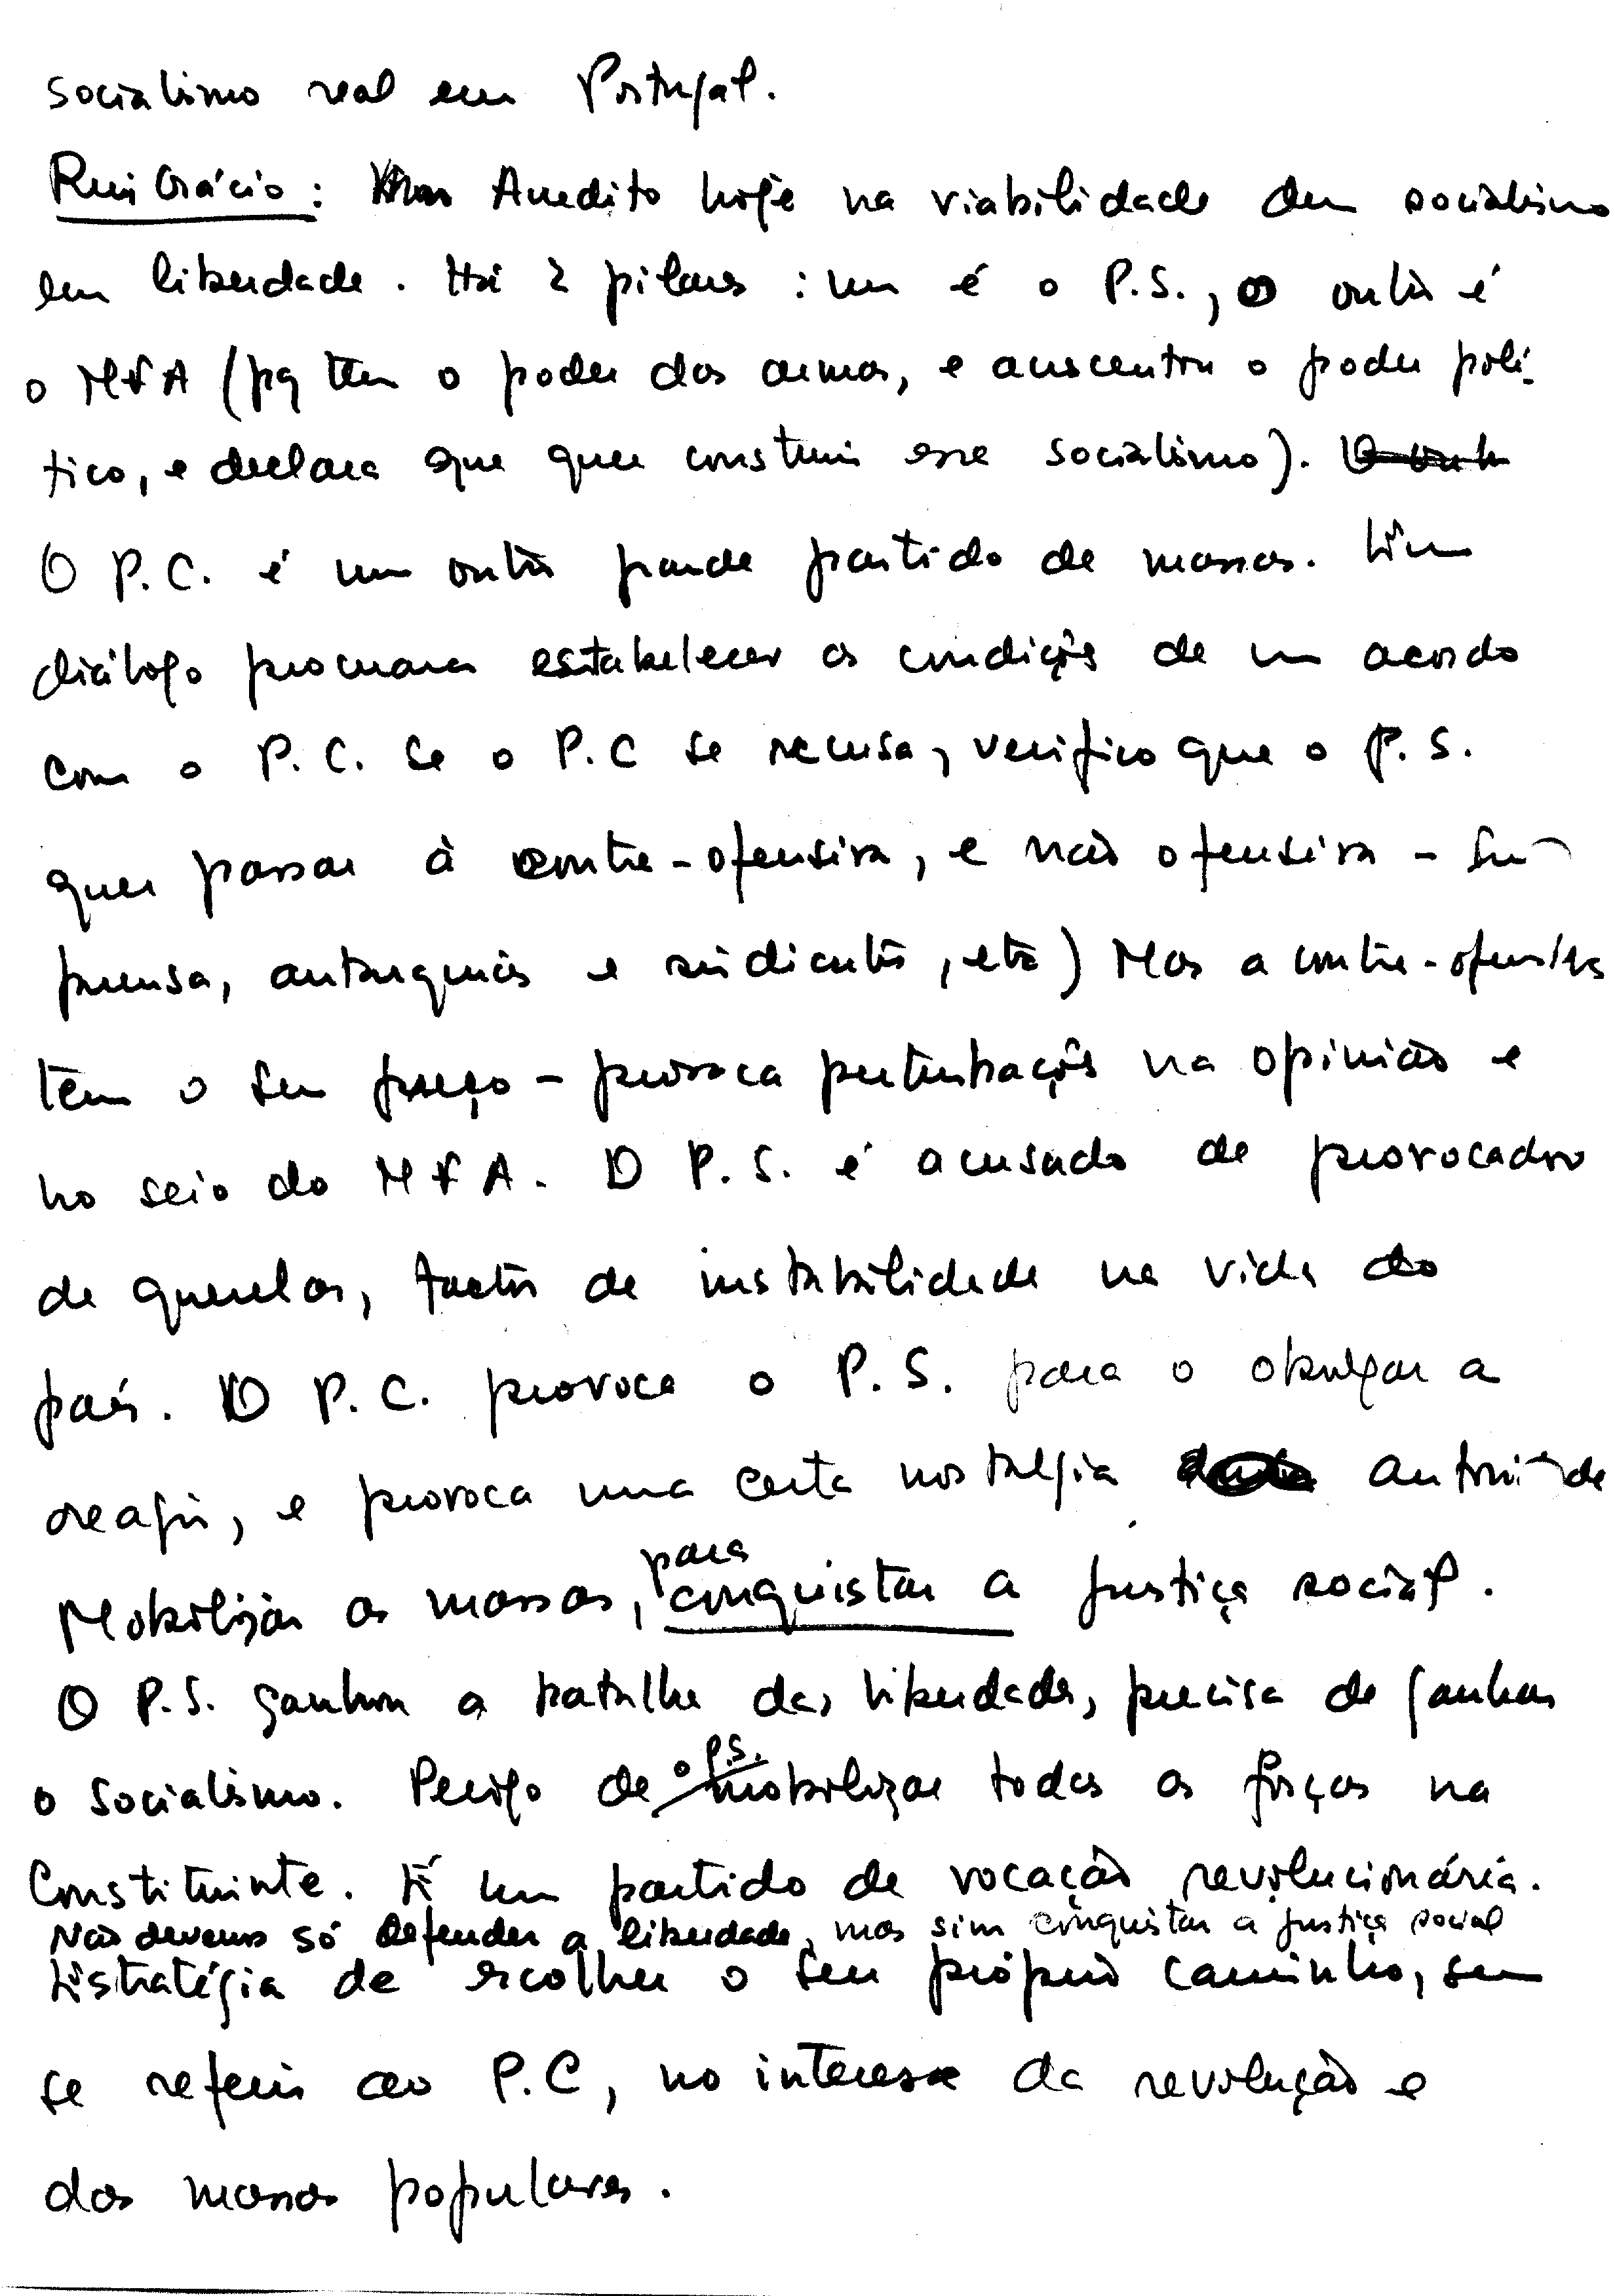 socialismo real em Portugal.
Rui Grácio: Acredito hoje na viabilidade dum socialismo
em liberdade. Há 2 pilares: um é o P.S., o outro é
o MFA (pq tem o poder das armas, e acrescentou o poder polí-
tico, e declara que quer construir esse socialismo).
O P.C. é um outro grande partido de massas. Em
diálogo procurar estabelecer as condições de um acordo
com o P.C. Se o P.C se recusa, verifico que o P.S.
quer passar à contra-ofensiva, e não ofensiva -
prensa, autarquias e sindicatos, etc) Mas a contra-ofensiva
tem o seu preço - provoca perturbações na opinião e
no seio do MFA. O P.S. é acusado de provocador
de querelas, factor de instabilidade na vida do
país. O P.C. provoca o P.S. para o obrigar a
reagir, e provoca uma certa nostalgia autoridade
Mobilizar as massas, para conquistar a justiça social.
O P.S. ganhou a batalha das liberdades, precisa de ganhar
o socialismo. Perigo de o P.S. mobilizar todas as forças na
Constituinte. É um partido de vocação revolucionária.
Não devemos só defender a liberdade, mas sim conquistar a justiça social
Estratégia de escolher o seu próprio caminho, sem
se referir ao P.C, no interesse da revolução e
das massas populares.